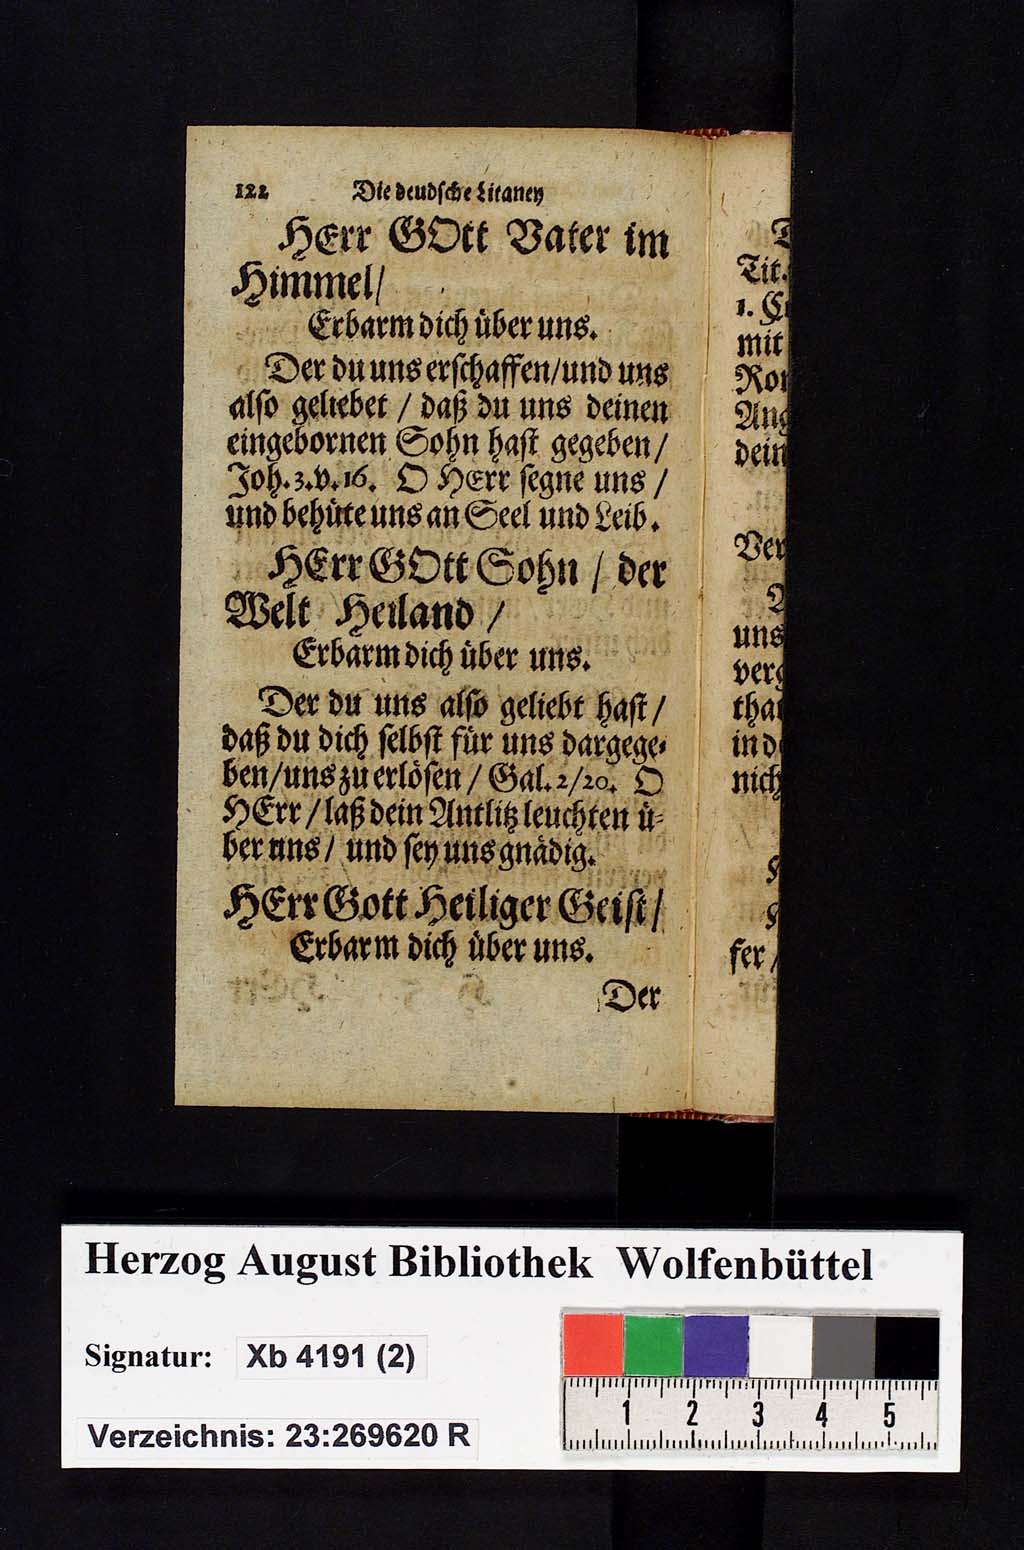 122 Die deudsche Litaney
HErr GOtt Vater im
Himmel/
Erbarm dich über uns.
Der du uns erschaffen/und uns
also geliebet / daß du uns deinen
eingebornen Sohn hast gegeben/
Joh.3.v.16. O HErr segne uns /
und behüte uns an Seel und Leib.
HErr GOtt Sohn / der
Welt Heiland /
Erbarm dich über uns.
Der du uns also geliebt hast/
daß du dich selbst für uns dargege-
ben/uns zu erlösen / Gal.2/20. O
HErr / laß dein Antlitz leuchten ü-
ber uns/ und sey uns gnädig.
HErr Gott Heiliger Geist/
Erbarm dich über uns.
Der
Tit.
1.
mit
dein
uns
nich
fer /
Herzog August Bibliothek Wolfenbüttel
Signatur: Xb 4191 (2)
Verzeichnis: 23:269620 R
1 2 3 4 5